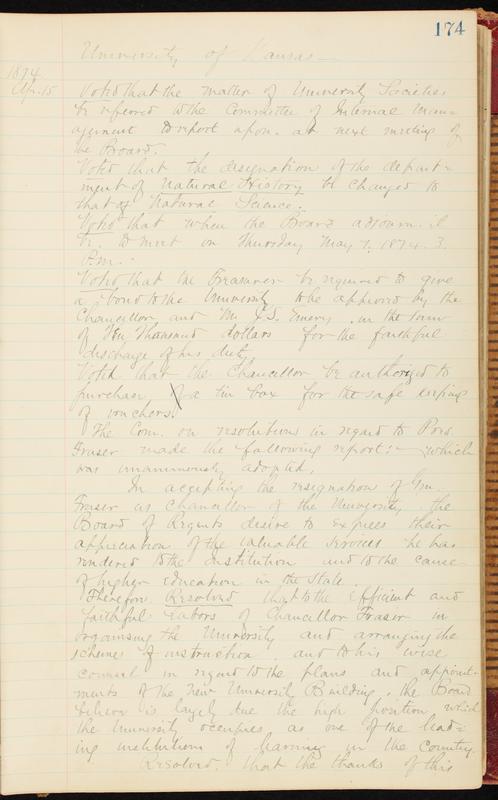 174
University of Kansas
1874
Apr. 15 Voted that the matter of University Societies
be referred to the Committee of Internal Man-
agement to report upon at next meeting of
the Board.
Voted that the designation of the depart-
ment of Natural History be changed to
that of Natural Science.
Voted that when the Board adjourn it
be to meet on Thursday May 7, 1874. 3
P.m.
Voted that the Treasurer be required to give
a bond to the University to be approved by the
Chancellor and Mr. Emery in the sum
of Ten Thousand dollars for the faithful
discharge of his duty.
Voted that the Chancellor be authorized to
purchase a tin box for the safe keeping
of vouchers.
The Com. on resolutions in regard to Pres.
Fraser made the following report:- which
was unanimously adopted.
In accepting the resignation of Gen.
Fraser as Chancellor of the University, the
Board of Regents desire to express their
appreciation of the valuable services he has
rendered to the Institution and to the cause
of higher education in the State.
Therefore Resolved that to the efficient and
faithful labors of Chancellor Fraser in
organising the University and arranging the
schemes of instruction and to his wise
counsel in regard to the plans and appoint-
ments of the New University Building, the Board
believe is largely due the high position which
the University occupies as one of the lead-
ing institutions of learning in the Country.
Resolved, that the thanks of this